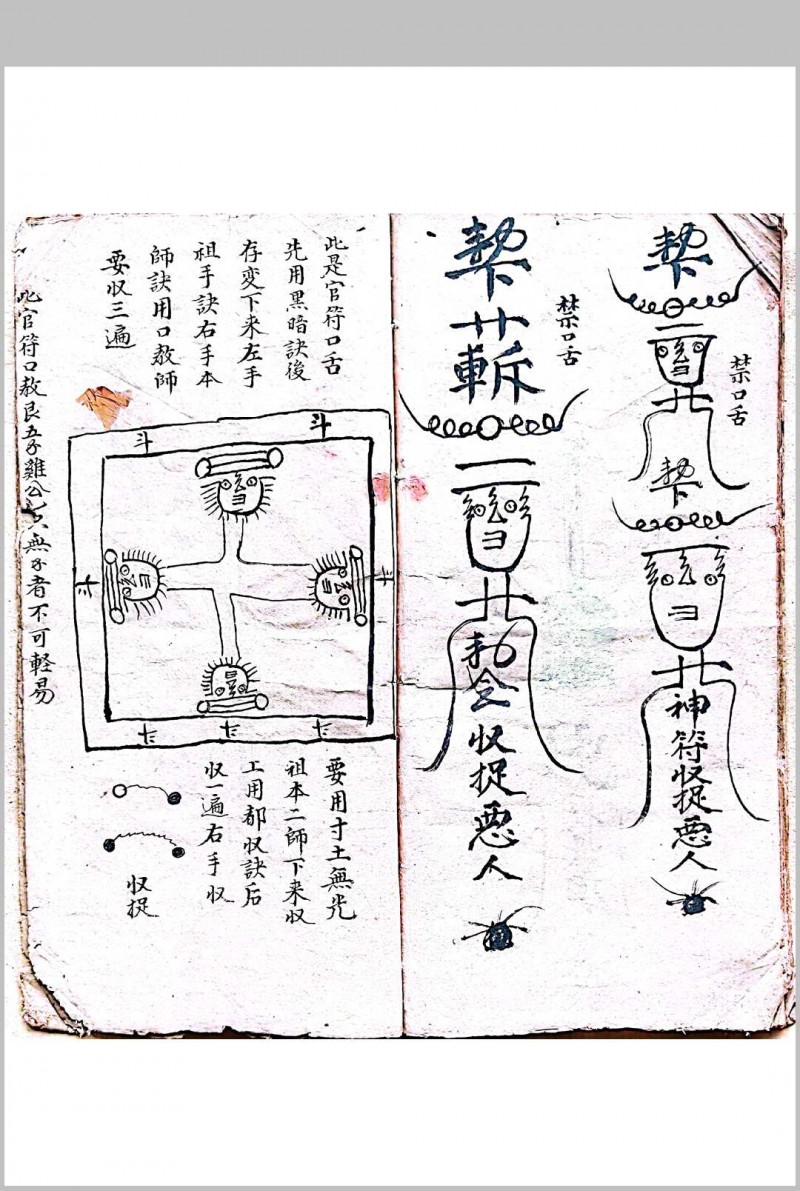 禁口舌
神符収捉悪人
禁口舌
収捉悪人
此是官符口舌
先用黑暗訣後
存変下来左手
祖手訣右手本
師訣用口教師
要収三遍
斗
斗
要用寸土無光
祖本二師下来収
工用都収訣后
収一遍右手収
収捉
此官符口教良五子雞公
無子者不可軽易